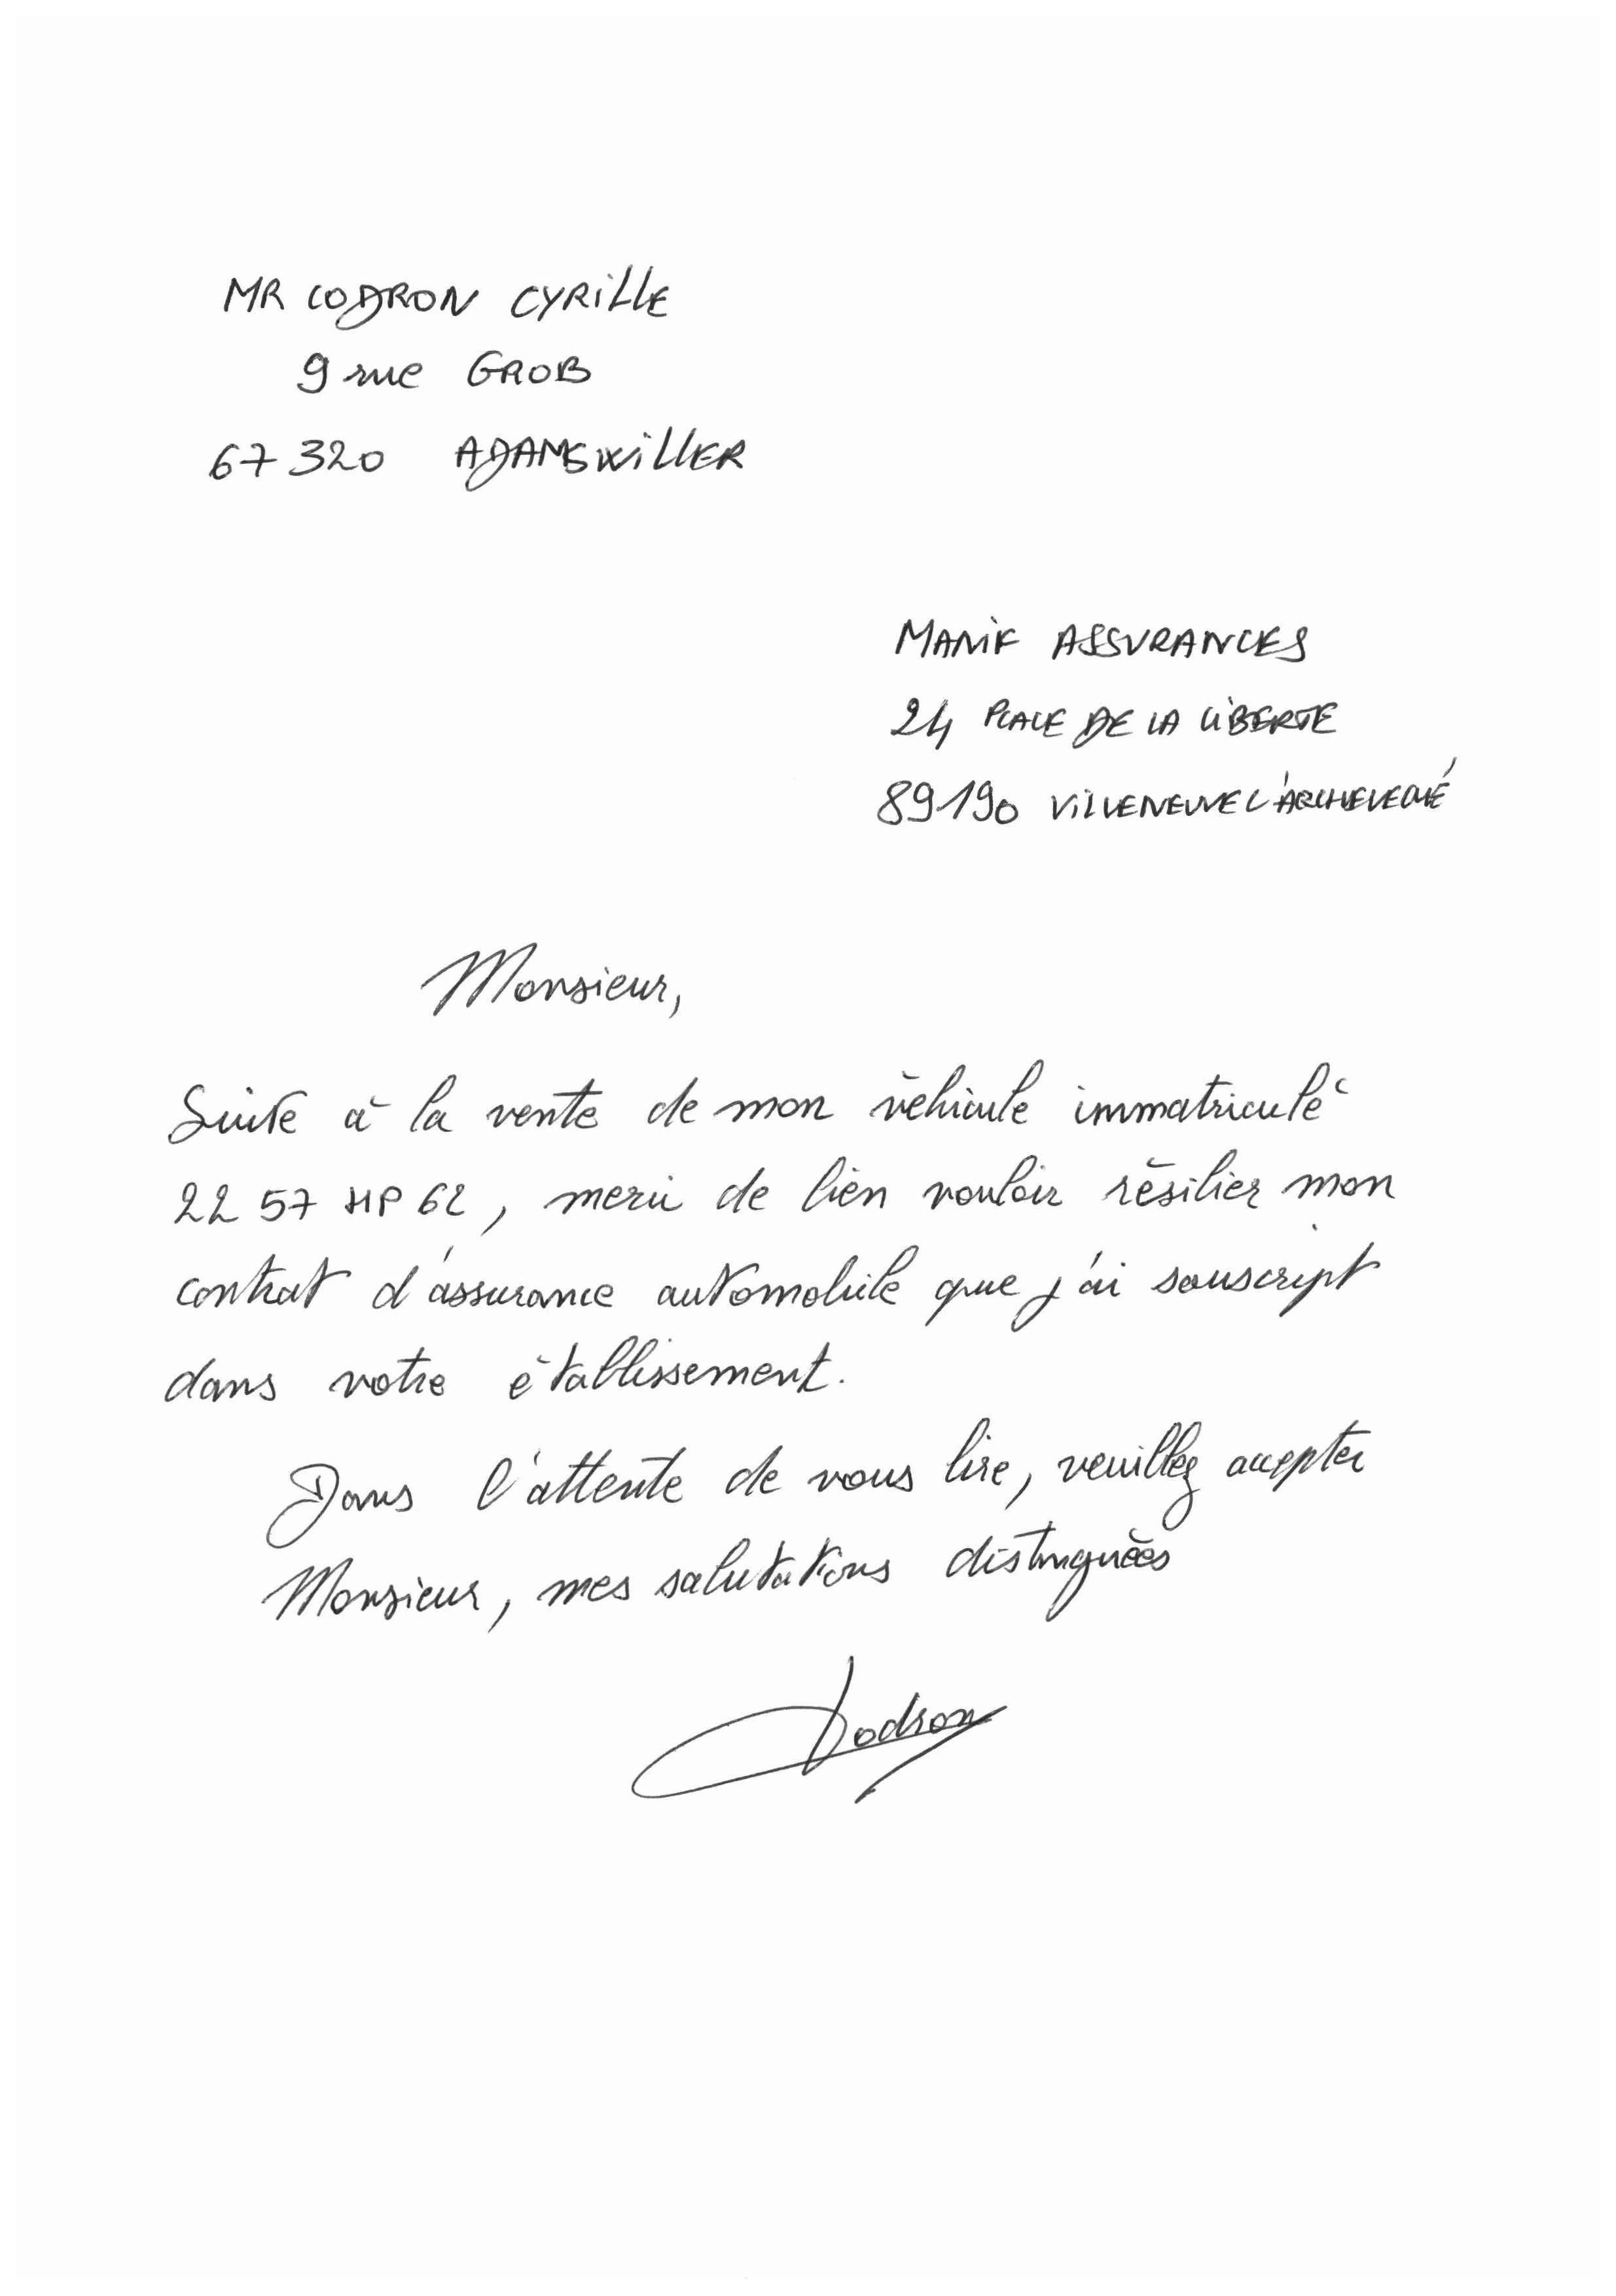 MR CODRON CYRILLE
9 rue GROB
67320 ADAMSWILLER
MANIF ASSURANCES
24 PLACE DE LA LIBERTE
89190 VILLENEUVE L'ARCHEVEQUÉ
Monsieur,
Suite à la vente de mon véhicule immatriculé
22 57 HP 62, merci de bien vouloir résilier mon
contrat d'assurance automobile que j'ai souscript
dans votre établissement.
Dans l'attente de vous lire, veuillez accepter
Monsieur, mes salutations distinguées
Codron